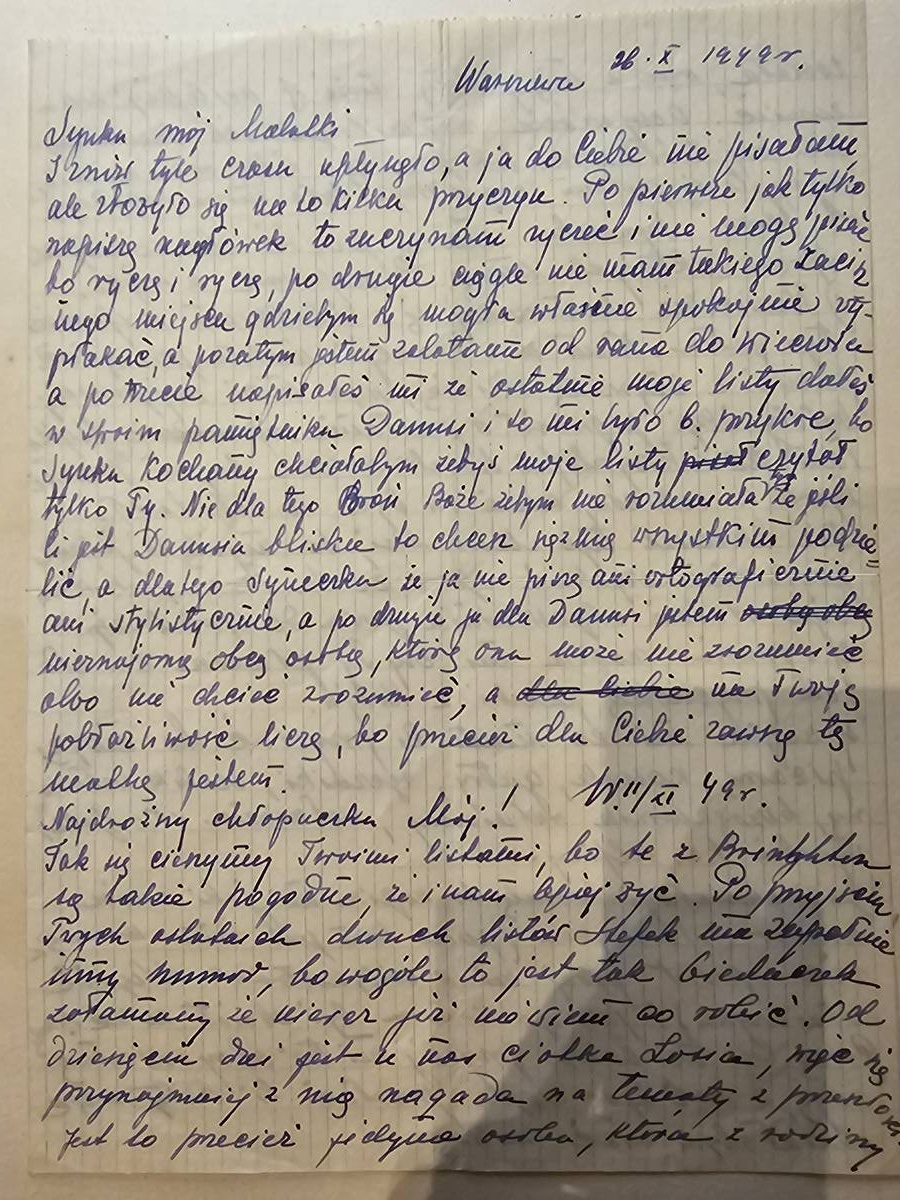 Warszawa 26. X 1949 r.
Synku mój Maleńki
I znów tyle czasu upłynęło, a ja do Ciebie nie pisałam
ale złożyło się na to kilka przyczyn. Po pierwsze jak tylko
napiszę nagłówek to zaczynam ryczeć i nie mogę pisać
bo ryczę i ryczę, po drugie ciągle nie mam takiego zacisz
nego miejsca gdziebym się mogła właśnie spokojnie wy-
płakać, a pozatym jestem zalatana od rana do wieczora
a po trzecie napisałeś mi że ostatnie moje listy dałeś
w swoim pamiętniku Danusi i to mi było b. przykre, bo
Synku Kochany chciałabym żebyś moje listy pisał czytał
tylko Ty. Nie dla tego Broń Boże żebym nie rozumiała że jeśli
Ci jest Danusia bliska to chcesz się z nią wszystkim podzie=
lić, a dlatego Syneczku że ja nie piszę ani ortograficznie
ani stylistycznie, a po drugie ja dla Danusi jestem osobą obcą
nieznajomą obcą osobą, którą ona może nie zrozumieć
albo nie chcieć zrozumieć, a dla Ciebie na Twoją
pobłażliwość liczę, bo przecież dla Ciebie zawszę tą
matką jestem.
W. 11/XI 49 r.
Najdroższy chłopaczku Mój!
Tak się cieszymy Twoimi listami, bo te z
są takie pogodne, że i nam lepiej żyć. Po przyjściu
Twych ostatnich dwuch listów Stefek ma zupełnie
inny humor, bo wogóle to jest tak biedaczek
załamany że nieraz już nie wiem co robić. Od
dziesięciu dni jest u nas ciotka Zosia, więc się
przynajmniej z nią nagada na tematy z przeszłości
Jest to przecież jedyna osoba, która z rodziny